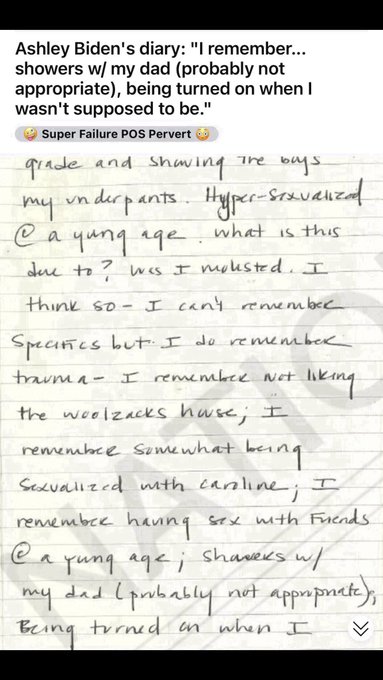 Ashley Biden's diary: "I remember...
showers w/ my dad (probably not
appropriate), being turned on when I
wasn't supposed to be."
🤪 Super Failure POS Pervert 😳
grade and showing the boys
my underpants. Hyper-sexualized
@ a yung age. what is this
due to? Was I molested. I
think so – I can't remember
specifics but I do remember
trauma – I remember not liking
the woolzacks house; I
remember somewhat being
sexualized with caroline; I
remember having sex with friends
@ a yung age; showers w/
my dad (probably not appropriate);
Being turned on when I
NATION